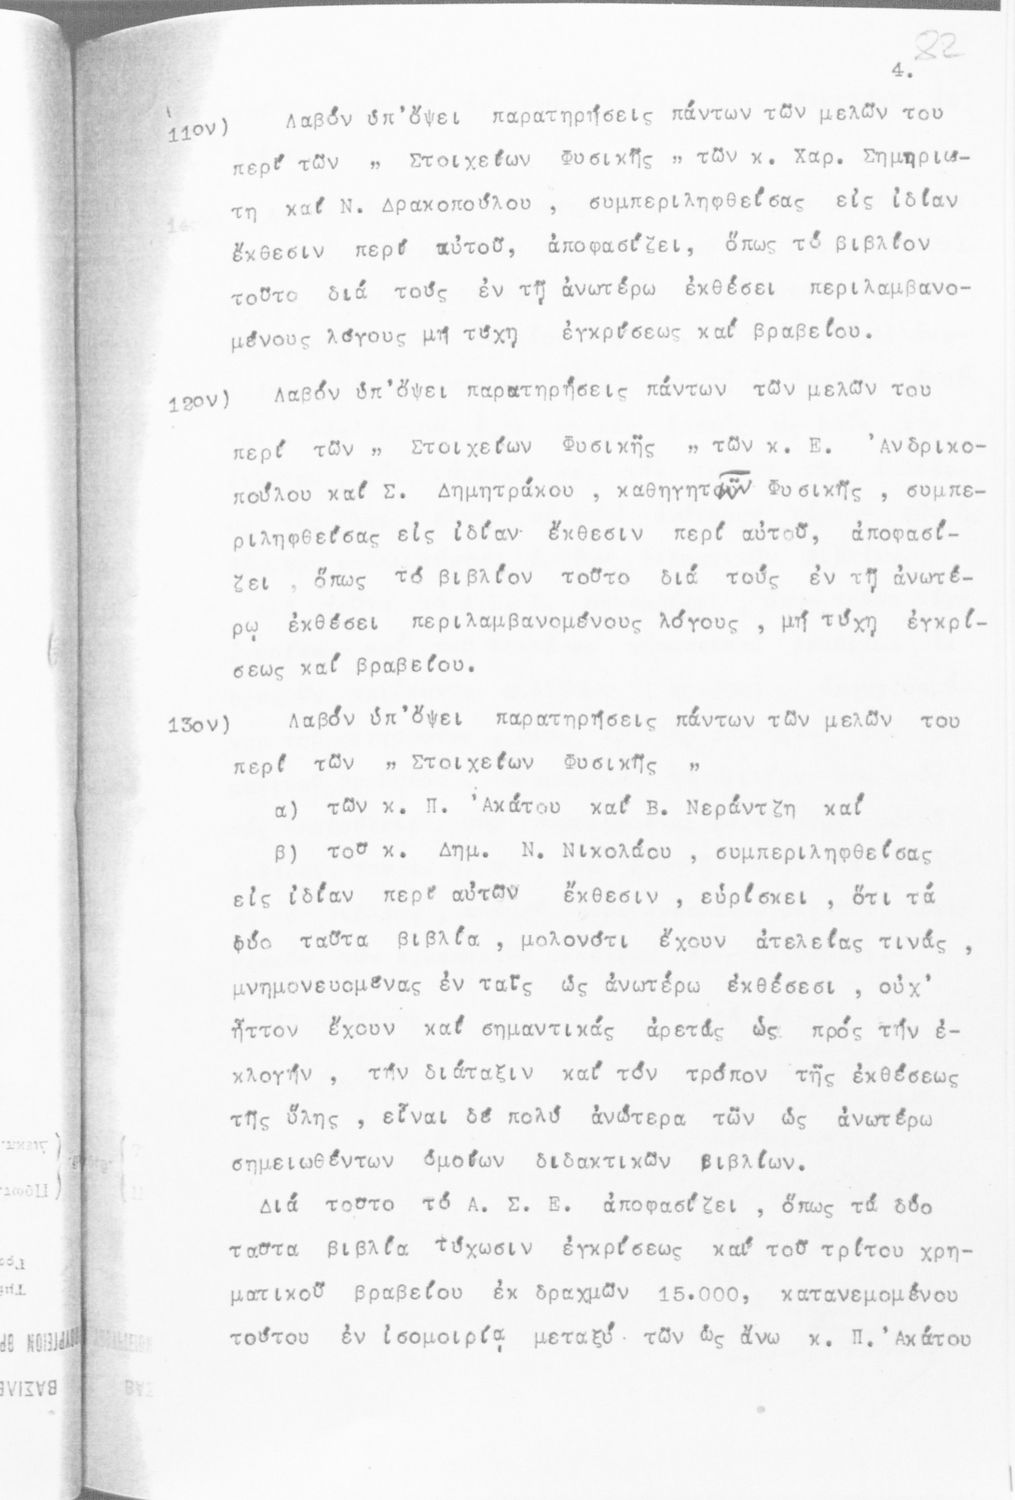 82
4.
11ον) Λαβόν ὑπ'ὄψει παρατηρήσεις πάντων τῶν μελῶν του
περί τῶν „ Στοιχείων Φυσικῆς „ τῶν κ. Χαρ. Σημηριω-
τη καί Ν. Δρακοπούλου , συμπεριληφθείσας εἰς ἰδίαν
ἔκθεσιν περί αὐτοῦ, ἀποφασίζει, ὅπως τό βιβλίον
τοῦτο διά τούς ἐν τῇ ἀνωτέρω ἐκθέσει περιλαμβανο-
μένους λόγους μή τύχῃ ἐγκρίσεως καί βραβείου.
12ον) Λαβόν ὑπ'ὄψει παρατηρήσεις πάντων τῶν μελῶν του
περί τῶν „ Στοιχείων Φυσικῆς „ τῶν κ. Ε. 'Ανδρικο-
πούλου καί Σ. Δημητράκου , καθηγητῶν Φυσικῆς , συμπε-
ριληφθείσας εἰς ἰδίαν ἔκθεσιν περί αὐτοῦ, ἀποφασί-
ζει , ὅπως τό βιβλίον τοῦτο διά τούς ἐν τῇ ἀνωτέ-
ρῳ ἐκθέσει περιλαμβανομένους λόγους , μή τύχῃ ἐγκρί-
σεως καί βραβείου.
13ον) Λαβόν ὑπ'ὄψει παρατηρήσεις πάντων τῶν μελῶν του
περί τῶν „ Στοιχείων Φυσικῆς „
α) τῶν κ. Π. 'Ακάτου καί Β. Νεράντζη καί
β) τοῦ κ. Δημ. Ν. Νικολάου , συμπεριληφθείσας
εἰς ἰδίαν περί αὐτῶν ἔκθεσιν , εὑρίσκει , ὅτι τά
δύο ταῦτα βιβλία , μολονότι ἔχουν ἀτελείας τινάς ,
μνημονευομένας ἐν ταῖς ὡς ἀνωτέρω ἐκθέσεσι , οὐχ'
ἧττον ἔχουν καί σημαντικάς ἀρετάς ὡς πρός τήν ἐ-
κλογήν , τήν διάταξιν καί τόν τρόπον τῆς ἐκθέσεως
τῆς ὕλης , εἶναι δέ πολύ ἀνώτερα τῶν ὡς ἀνωτέρω
σημειωθέντων ὁμοίων διδακτικῶν βιβλίων.
Διά τοῦτο τό Α. Σ. Ε. ἀποφασίζει , ὅπως τά δύο
ταῦτα βιβλία τύχωσιν ἐγκρίσεως καί τοῦ τρίτου χρη-
ματικοῦ βραβείου ἐκ δραχμῶν 15.000, κατανεμομένου
τούτου ἐν ἰσομοιρίᾳ μεταξύ τῶν ὡς ἄνω κ. Π.'Ακάτου